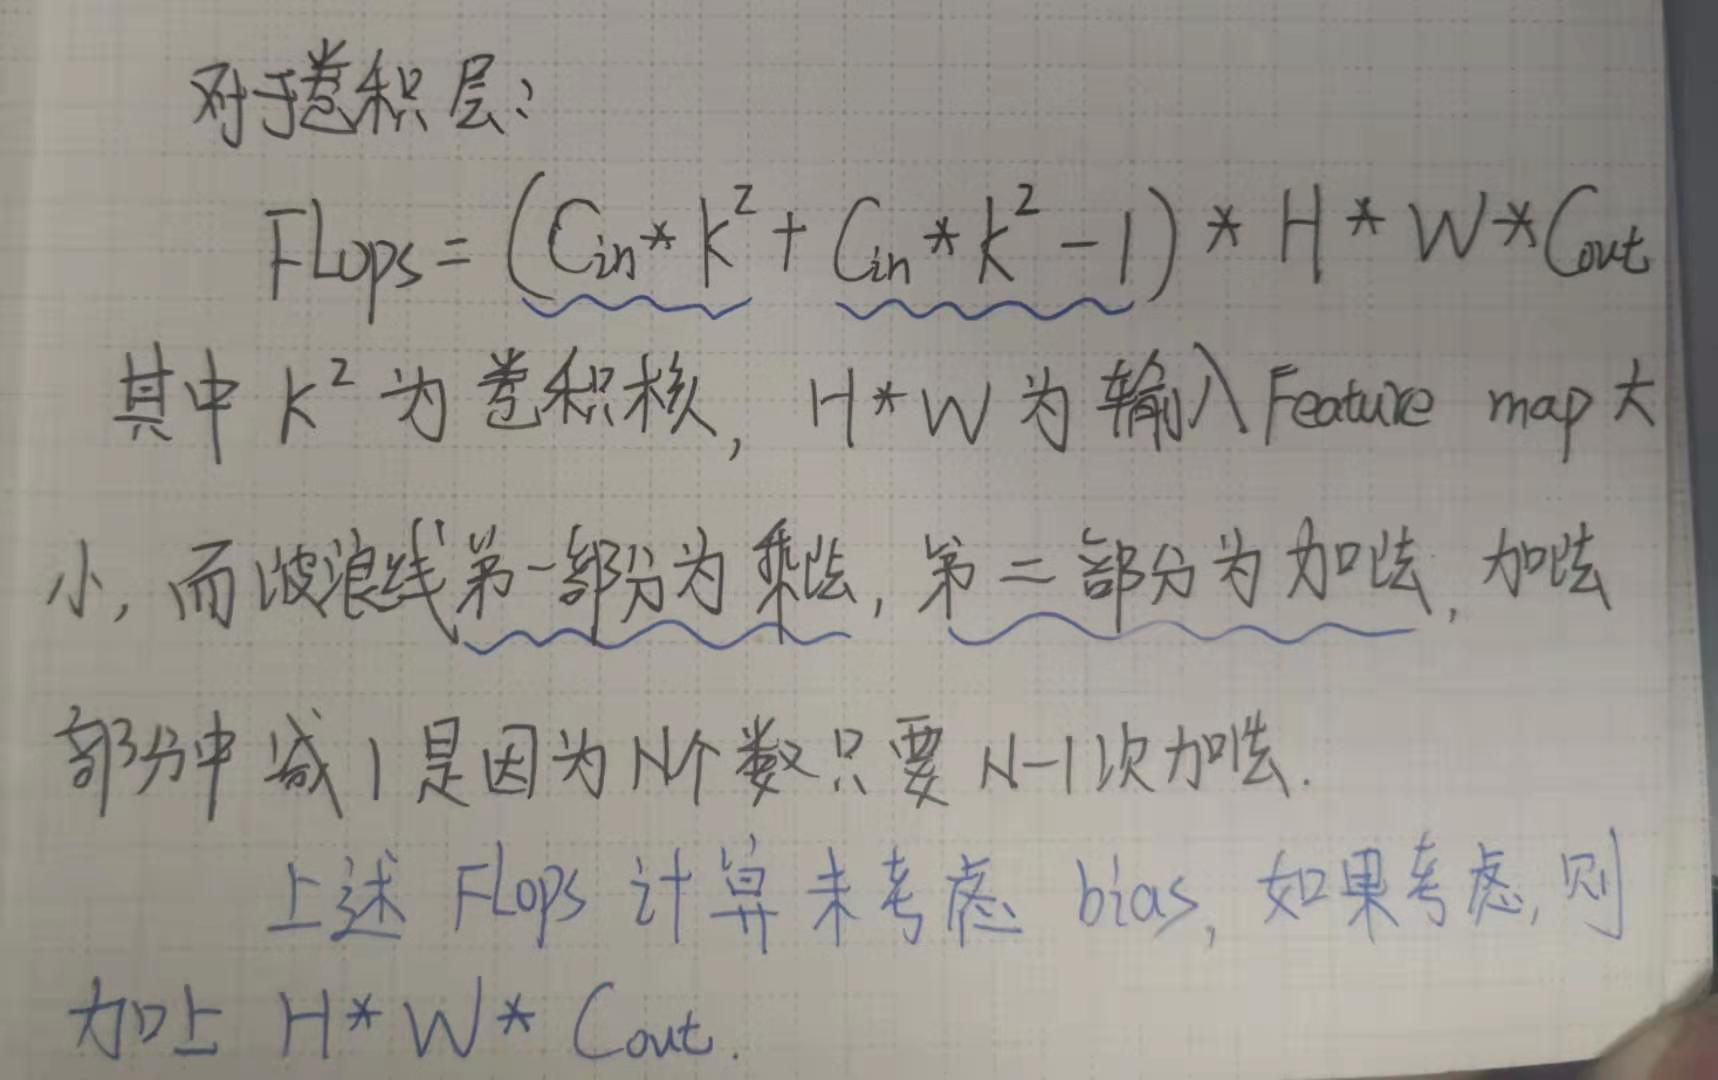 对于卷积层:
FLops = (Cin * k² + Cin * k² - 1) * H * W * Cout
其中 k² 为卷积核, H * W 为输入 Feature map 大
小, 而波浪线第一部分为乘法, 第二部分为加法, 加法
部分中减1是因为N个数只要N-1次加法.
上述 FLops 计算未考虑 bias, 如果考虑, 则
加上 H * W * Cout.